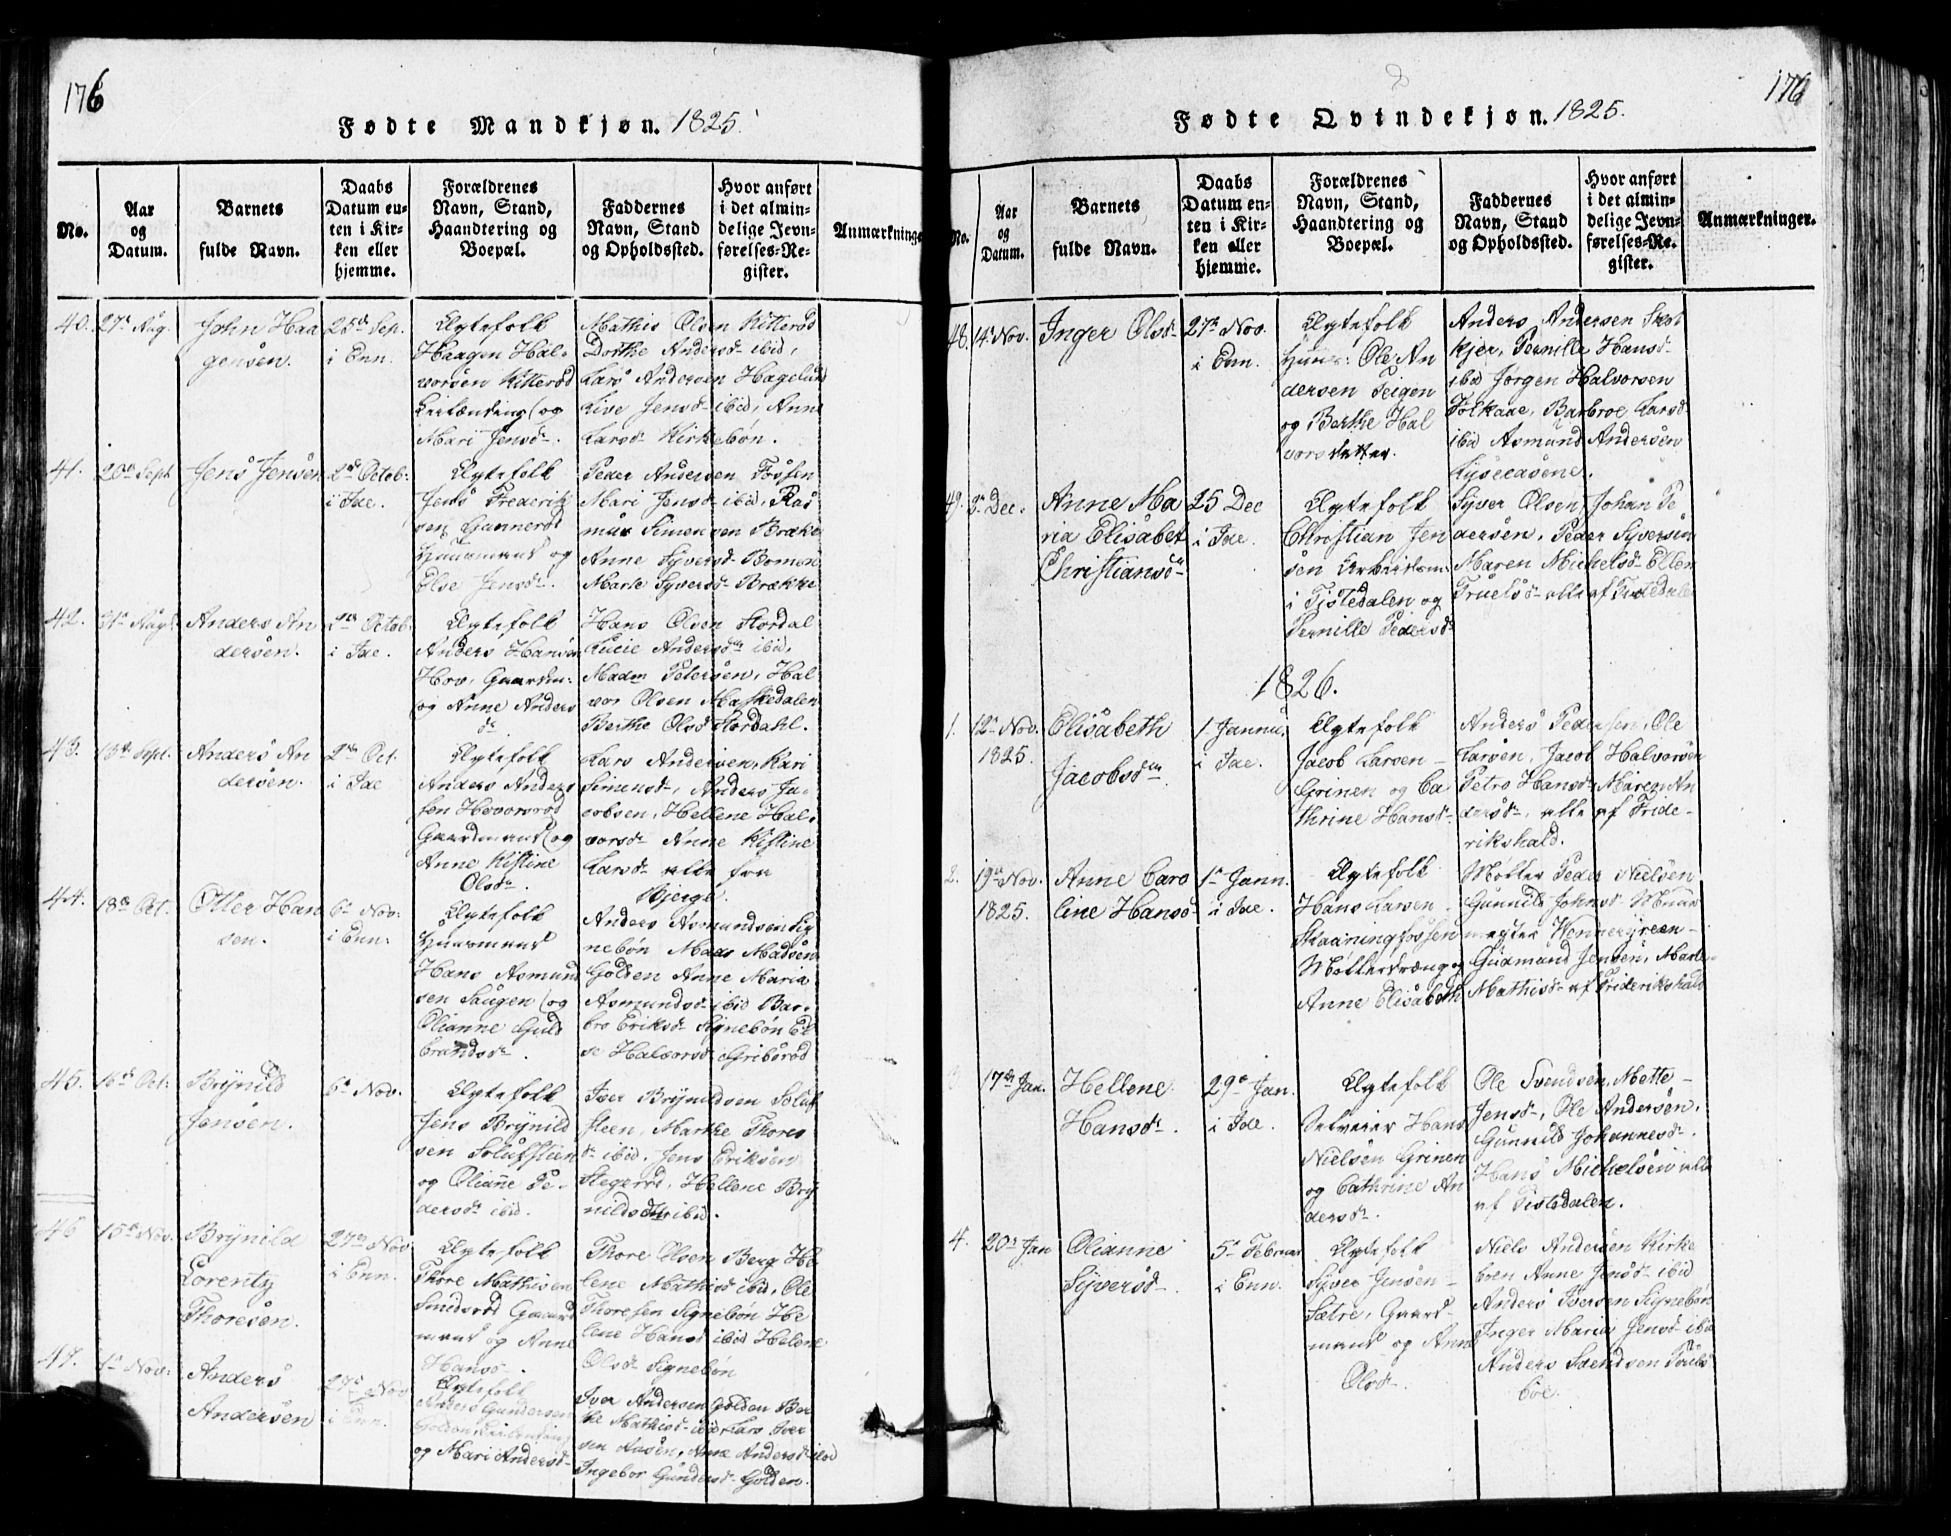 176
Fødte Mandkjøn. 1825.
No.
Aar og Datum.
Barnets fulde Navn.
Daabs Datum enten i Kirken eller hjemme.
Forældrenes Navn, Stand, Haandtering og Boepæl.
Faddernes Navn, Stand og Opholdssted.
Hvor anført i det almindelige Jevnførelses-Register.
Anmærkninge
40. 27de Aug. John Haa
gensen.
25de Sep.
i Enn.
Ægtefolk
Haagen Hal-
vorsen Kitterød
Leilænding og
Mari Jensd.
Mathis Olsen Kitterød
Dorthe Andersd ibid,
Lars Andersen Hagelund
Live Jensd ibid, Anne
Larsd Kirkebøn.
41. 20de Sept Jens Jensen
2de Octob:
i Ide.
Ægtefolk
Jens Frederik
sen Gunnerød
Huusmand og
Else Jensd.
Peder Andersen Fossen
Mari Jensd ibid, Ras
mus Simensen Brække
Anne Syversd
Marte Syversd Brække
42. 31te Aug. Anders An
dersen.
2den Octob:
i Ide.
Ægtefolk
Anders Hansen
Hov, Gaardm:
og Anne Anders
dr
Hans Olsen Stordal
Lucie Andersd ibid,
Madm Petersen, Hal
vor Olsen Maskedalen
Berthe Olsd Stordahl.
43. 13de Sept. Anders An
dersen.
2den Oct.
i Ide
Ægtefolk
Anders Anders
sen Hovorsrød
Gaardmand og
Anne Kistine
Olsdr.
Lars Andersen, Kari
Simensd, Anders Ja-
cobsen, Hellene Hal-
vorsd Anne Kistine
Larsd alle fra
Bjerge.
44. 18de Oct. Otter Han
sen.
6te Nov:
i Enn:
Ægtefolk
Huusmand
Hans Asmund
sen Saugen og
Olianne Guld
brandsdr.
Anders Asmundsen Sig
nebøn Mads Madsen
Golden Anne Maria
Asmundsd ibid Bar-
bro Eriksd Signebøn El
se Halvorsd Gribsrød
45. 16de Oct: Brynild
Jensen.
6te Nov.
Ægtefolk
Jens Brynild
sen Solufsteen
og Oliane Pe-
dersd ibid.
Iver Brynildsen Soluf
steen, Marthe Thores
dr ibid. Jens Eriksen
Stegerød, Hellene Bry
nildsdtr ibid.
46 15de Nov. Brynild
Lorentz
Thoresen.
27de Nov
i Enn.
Ægtefolk
Thore Mathisen
Smidsrød Gaard
mand og Anne
Hansd.
Thore Olsen Berg He
lene Mathisd ibid, Ole
Thoresen Signebøn He
lene Hansd ibid Helene
Olsd Signebøn
47. 1te Nov: Anders
Andersen
27de Nov
i Enn.
Ægtefolk
Anders Gundersen
Golden, Leilending
og Mari Andersd
Iver Andersen Golden Ber
the Mathisd ibid Lars Iver
sen Aasen, Anne Andersd ibid
Ingebor Gundersd Golden.
176
Fødte Qvindekjøn. 1825.
No.
Aar og Datum.
Barnets fulde Navn.
Daabs Datum enten i Kirken eller hjemme.
Forældrenes Navn, Stand, Haandtering og Boepæl.
Faddernes Navn, Stand og Opholdssted.
Hvor anført i det almindelige Jevnførelses-Re-gister.
Anmærkninger.
48. 14de Nov. Inger Olsd
27de Nov.
i Enn.
Ægtefolk
Huus: Ole An
dersen Teigen
og Berthe Hal
vorsdatter.
Anders Andersen Skot
kjer, Pernille Hansd
ibid Jørgen Halvorsen
Folkaae, Barbroe Larsd
ibid Asmund Andersen
Lyseaasene.
49. 3de Dec. Anne Ma
ria Elisabet
Christiansd
25 Dec
i Ide.
Ægtefolk
Christian Jen
sen Arbeidsm:
i Tistedalen og
Pernille Pedersd
Syver Olsen, Johan Pe
dersen, Peder Syversen
Maren Michelsd Ellen
Truelsd alle af Tistedale
1826.
1. 12te Nov.
1825.
Elisabeth
Jacobsdtr.
1 Januu,
i Ide.
Ægtefolk
Jacob Larsen
Grinen og Ca
thrine Hansd
Anders Pedersen, Ole
Larsen, Jacob Halvorsen
Petro Hansd Maren An
dersd, alle af Fride-
rikshald.
2. 19de Nov.
1825.
Anne Caro
line Hansd
1te Jann.
i Ide.
Ægtefolk
Hans Larsen
Skaaningfossen
Møllerdreng og
Anne Elisabeth
Møller Peder Nielsen
Gunnild Johnsd Muur
mester Wennergreen
Gudmund Jensen, Marte
Mathisd af Friderikshald
17de Jan. Hellene
Hansd.
29de Jan.
i Ide.
Ægtefolk
Selveier Hans
Nielsen Grinen
og Cathrine An
dersdr.
Ole Svendsen, Mette
Jensd, Ole Andersen,
Gunnild Johannesd.
Hans Michelsen alle
af Tistedalen.
4. 20de Jan Olianne
Syversd.
5te Februar
i Enn.
Ægtefolk
Syver Jensen
Sætre, Gaard
mand og Anne
Olsd.
Niels Andersen Kirke
boen Anne Jensd ibid
Anders Iversen Signebøn
Inger Maria Jensd ibid
Anders Svendsen Pauls
boe.